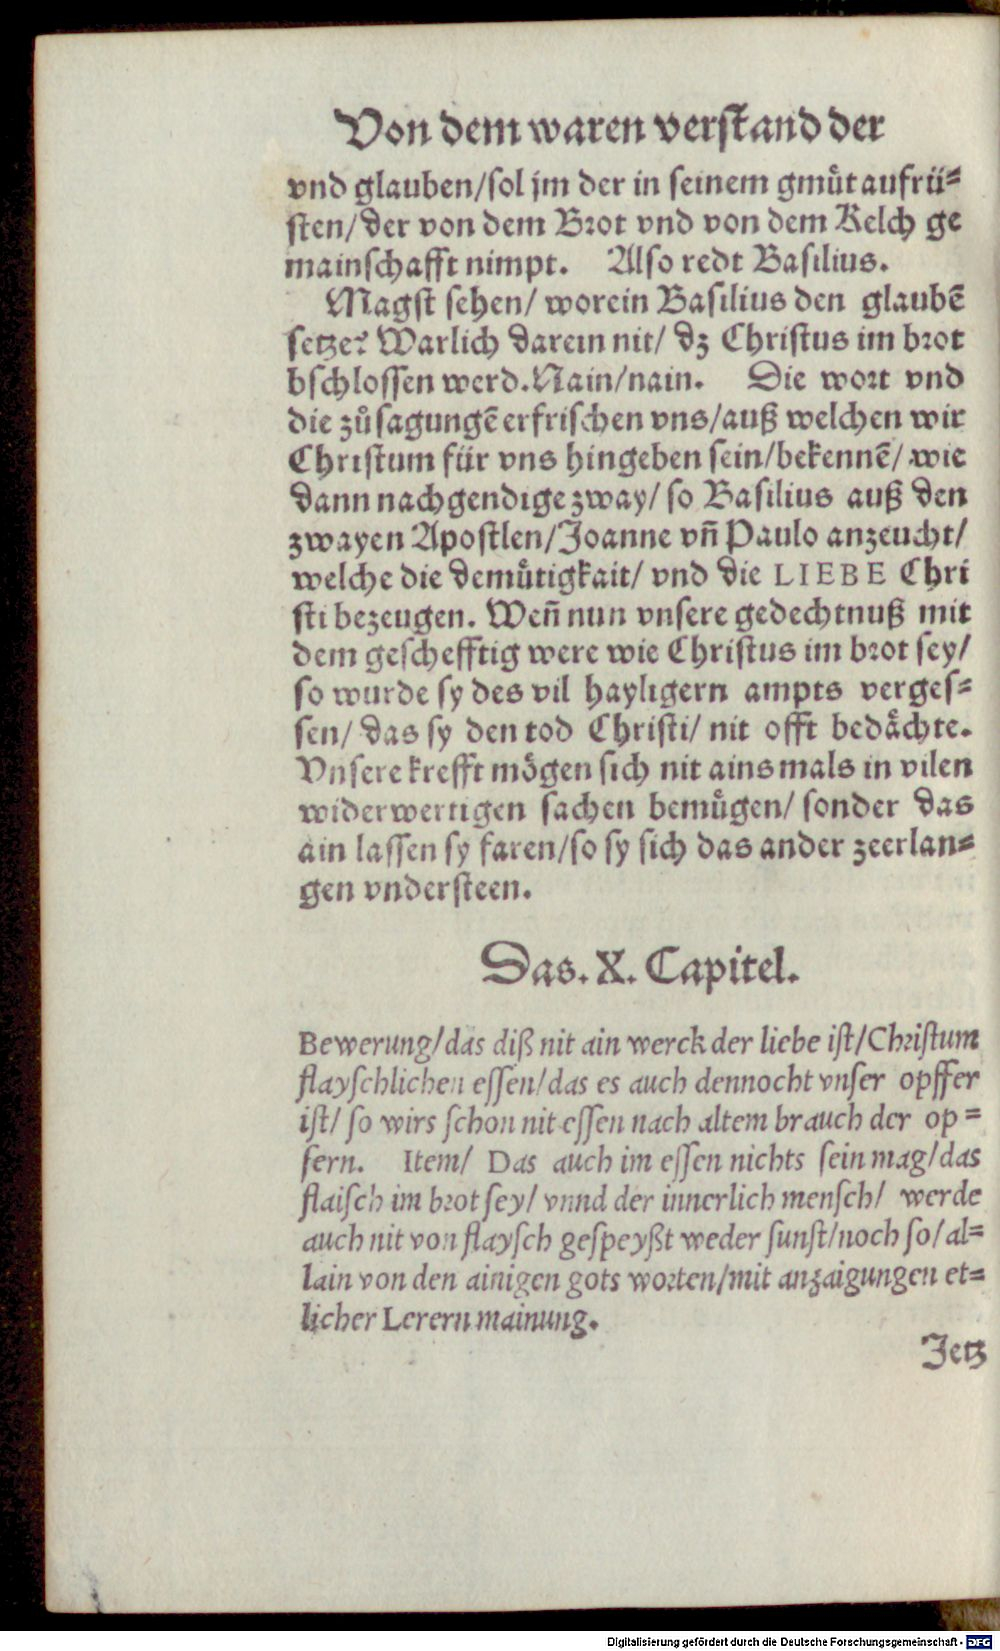 Von dem waren verſtand der
vnd glauben/ſol jm der in ſeinem gmuͤt aufrü⸗
ſten/ der von dem Brot vnd von dem Kelch ge
mainſchafft nimpt. Alſo redt Baſilius.
Magſt ſehen/ worein Baſilius den glaubẽ
ſetze? Warlich darein nit/ dz Chriſtus im brot
bſchloſſen werd. Nain/nain. Die wort vnd
die zuͦſagungẽ erfriſchen vns/auß welchen wir
Chriſtum für vns hingeben ſein/bekennẽ/ wie
dann nachgendige zway/ ſo Baſilius auß den
zwayen Apoſtlen/Joanne vñ Paulo anzeucht/
welche die demuͤtigkait/ vnd die LIEBE Chri
ſti bezeugen. Weñ nun vnſere gedechtnuß mit
dem geſchefftig were wie Chriſtus im brot ſey/
ſo wurde ſy des vil hayligern ampts vergeſ⸗
ſen/ das ſy den tod Chriſti/ nit offt bedaͤchte.
Vnſere krefft moͤgen ſich nit ains mals in vilen
widerwertigen ſachen bemuͤgen/ ſonder das
ain laſſen ſy faren/ſo ſy ſich das ander zeerlan⸗
gen vnderſteen.
Das. X. Capitel.
Bewerung/das diß nit ain werck der liebe iſt/Chriſtum
flayſchlichen eſſen/das es auch dennocht vnſer opffer
iſt/ ſo wirs ſchon nit eſſen nach altem brauch der op⸗
fern. Item/ Das auch im eſſen nichts ſein mag/das
flaiſch im brot ſey/ vnnd der innerlich menſch/ werde
auch nit von flayſch geſpeyßt weder ſunſt/noch ſo/al⸗
lain von den ainigen gots worten/mit anzaigungen et⸗
licher Lerern mainung.
Jetz
Digitalisierung gefördert durch die Deutsche Forschungsgemeinschaft - DFG